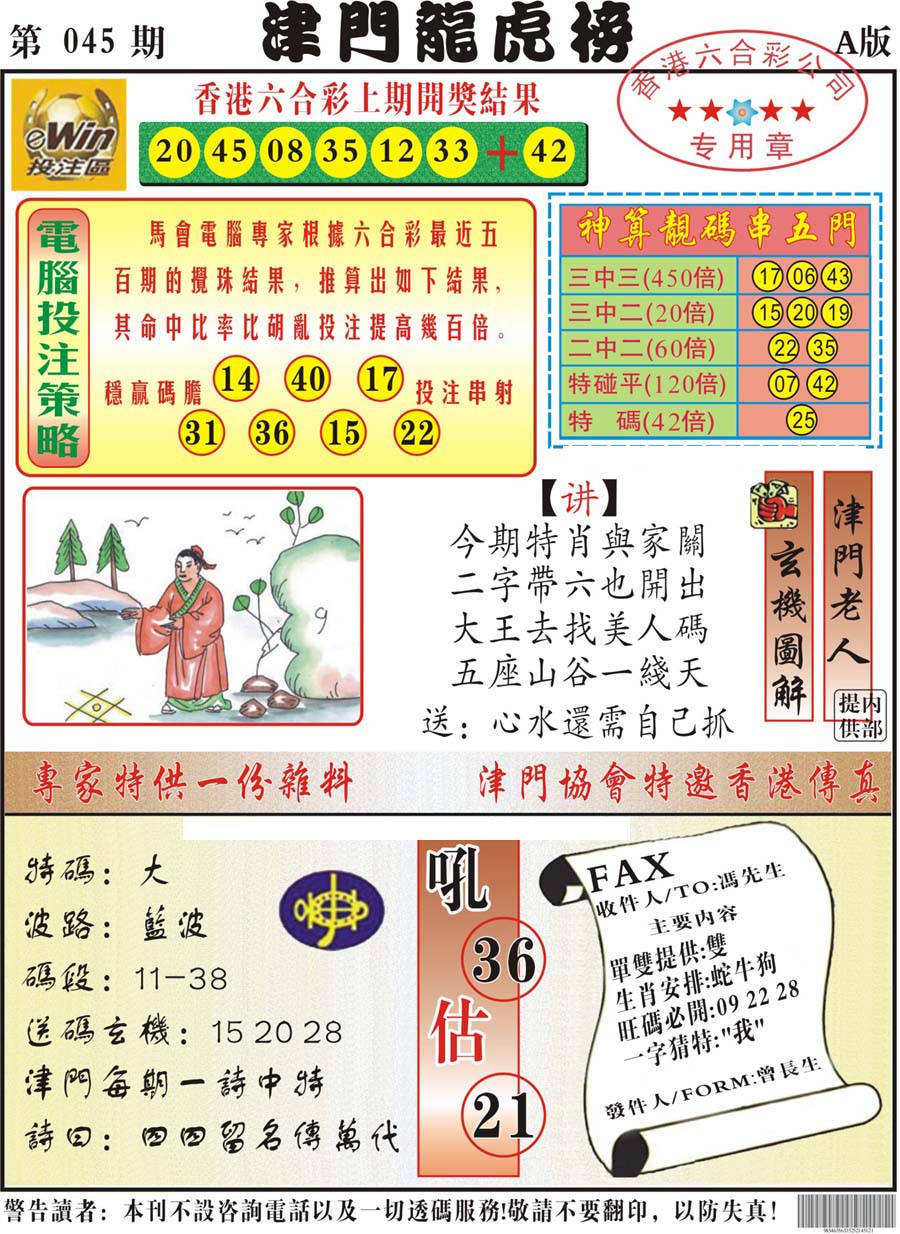 第 045 期
津門龍虎榜
A版
香港六合彩公司
专用章
eWin
投注區
香港六合彩上期開獎結果
20 45 08 35 12 33 + 42
電腦投注策略
馬會電腦專家根據六合彩最近五
百期的攪珠結果，推算出如下結果，
其命中比率比胡亂投注提高幾百倍。
穩贏碼膽 14 40 17 投注串射
31 36 15 22
神算靚碼串五門
三中三(450倍) 17 06 43
三中二(20倍) 15 20 19
二中二(60倍) 22 35
特碰平(120倍) 07 42
特 碼(42倍) 25
【讲】
今期特肖與家關
二字帶六也開出
大王去找美人碼
五座山谷一綫天
送：心水還需自己抓
玄機圖解
津門老人
内部提供
專家特供一份雜料
津門協會特邀香港傳真
特碼：大
波路：藍波
碼段：11-38
送碼玄機：15 20 28
津門每期一詩中特
詩曰：四四留名傳萬代
吼
36
估
21
FAX
收件人/TO:馮先生
主要内容
單雙提供:雙
生肖安排:蛇牛狗
旺碼必開:09 22 28
一字猜特:"我"
發件人/FORM:曾長生
警告讀者：本刊不設咨詢電話以及一切透碼服務!敬請不要翻印，以防失真！